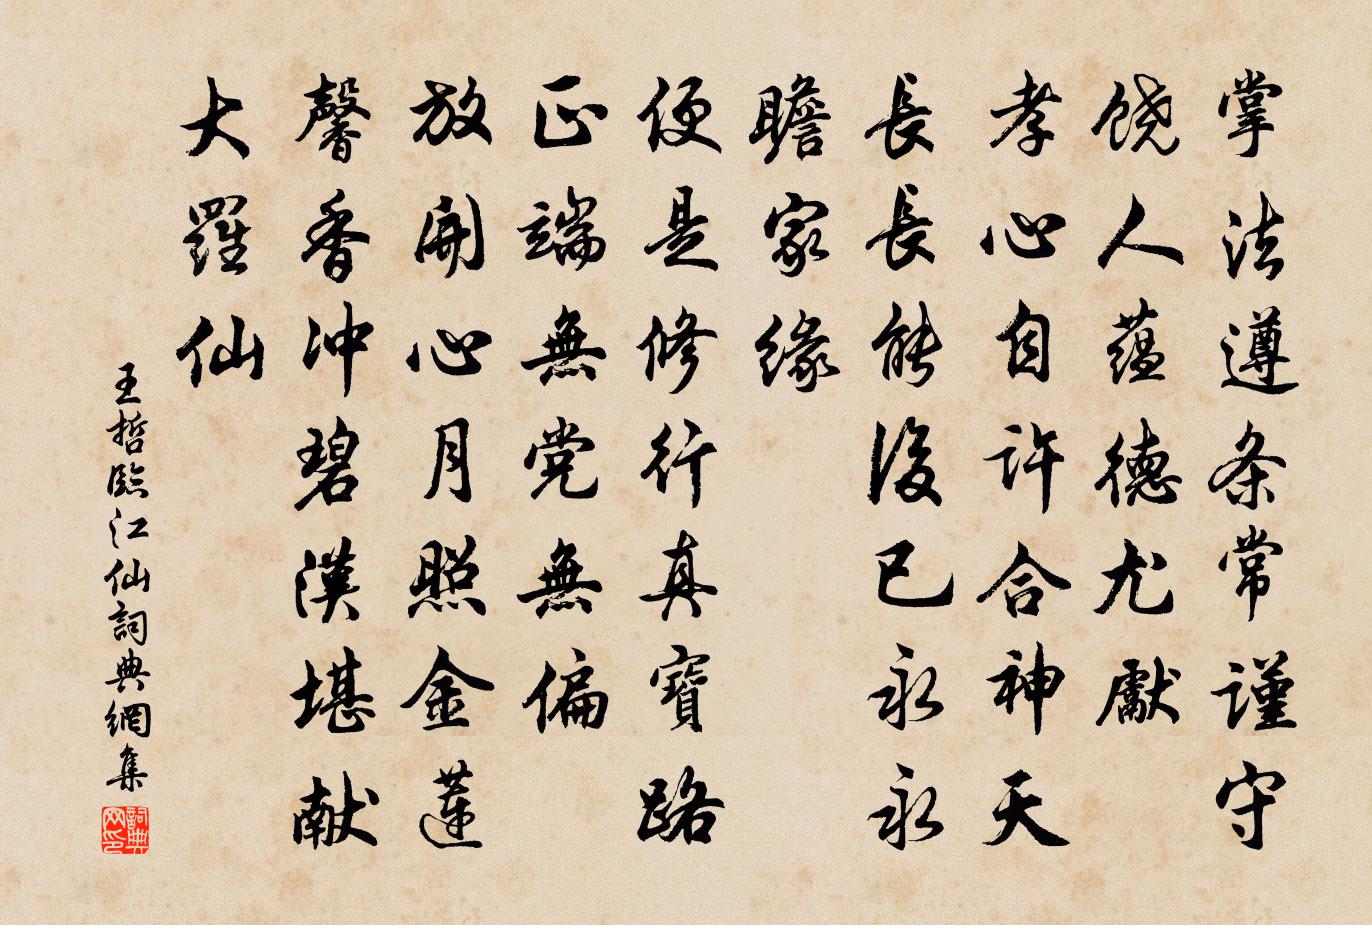 掌法遵条常谨守
饶人蕴德尤獻
孝心自许合神天
長長能後已永永
瞻家缘
便是修行真寶路
正端無党無偏
放開心月照金蓮
馨香冲碧漢堪献
大羅仙
王哲臨江仙詞典網集
詞典网印